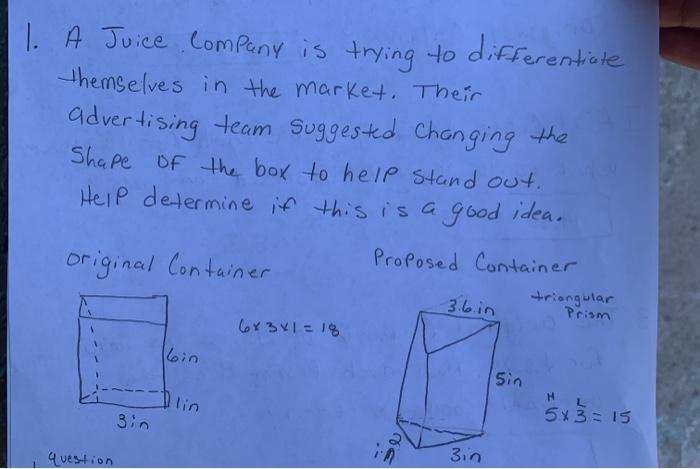 1. A Juice Company is trying to differentiate
themselves in the market. Their
advertising team suggested changing the
Shape of the box to help stand out.
Help determine if this is a good idea.
original Container
Proposed Container
triangular
Prism
3.6.in
6x3x1=18
6in
5in
1in
3in
H L
5x3=15
2
in
3in
question